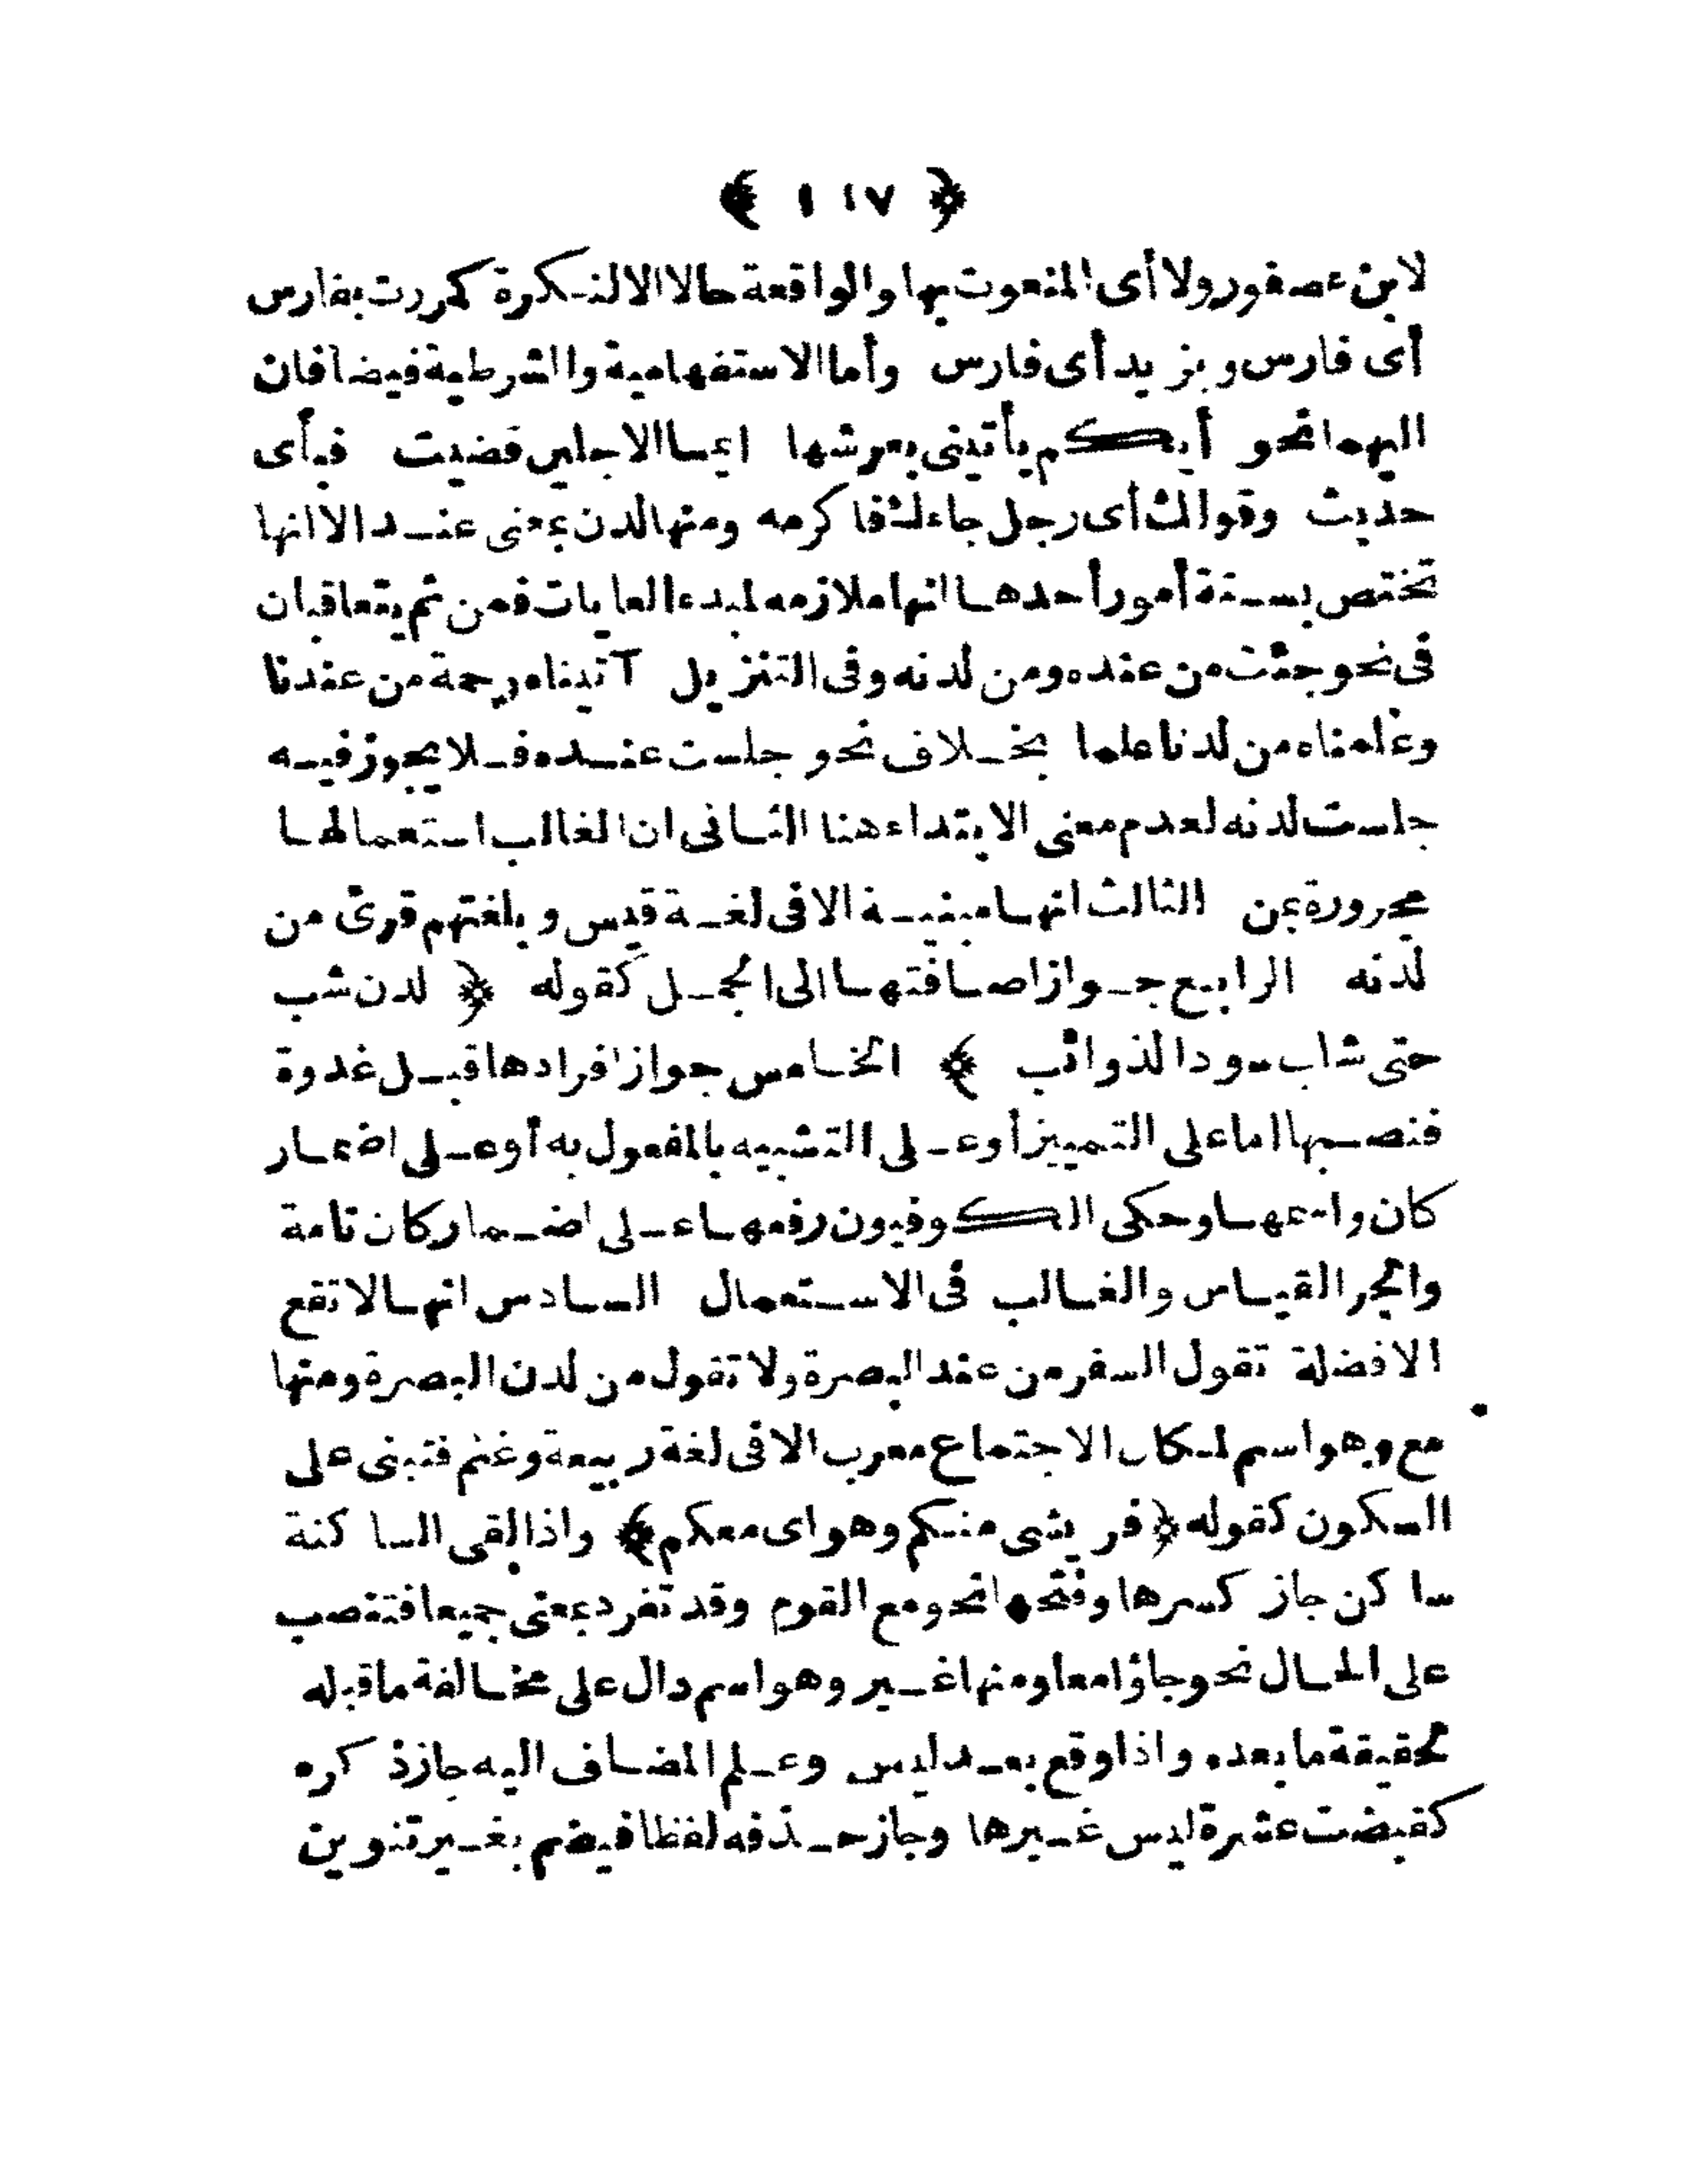 ﴿ ١١٧ ﴾
لابن عصفور ولا أى المنعوت بها والواقعة حالا الا لنكرة كمررت بفارس
أى فارس وبزيد أى فارس وأما الاستفهامية والشرطية فيضافان
اليهما نحو أيكم يأتينى بعرشها ايما الاجلين قضيت فبأى
حديث وقولك أى رجل جاءك فاكرمه ومنها لدن بمعنى عند الا انها
تختص بستة أمور أحدها انها ملازمه لمبدء الغايات فمن ثم يتعاقبان
فى نحو جئت من عنده ومن لدنه وفى التنزيل آتيناه رحمة من عندنا
وعلمناه من لدنا علما بخلاف نحو جلست عنده فلا يجوز فيه
جلست لدنه لعدم معنى الابتداء هنا الثانى ان الغالب استعمالها
مجرورة بمن الثالث انها مبنية الا فى لغة قيس وبلغتهم قرئ من
لدنه الرابع جواز اضافتها الى الجمل كقوله ﴿ لدن شب
حتى شاب سود الذوائب ﴾ الخامس جواز افرادها قبل غدوة
فنصبها اما على التمييز أو على التشبيه بالمفعول به أو على اضمار
كان واسمها وحكى الكوفيون رفعها على اضمار كان تامة
والجر القياس والغالب فى الاستعمال السادس انها لا تقع
الا فضلة تقول السفر من عند البصرة ولا تقول من لدن البصرة ومنها
مع وهو اسم لمكان الاجتماع معرب الا فى لغة ربيعة وغنم فتبنى على
السكون كقوله ﴿ فريشى منكم وهواى معكم ﴾ واذا لقى الساكنة
ساكن جاز كسرها وفتحها نحو مع القوم وقد تفرد بمعنى جميعا فتنصب
على الحال نحو جاؤا معا ومنها غير وهو اسم دال على مخالفة ما قبله
لحقيقة ما بعده واذا وقع بعد ليس وعلم المضاف اليه جاز ذكره
كقبضت عشرة ليس غيرها وجاز حذفه لفظا فيضم بغير تنوين